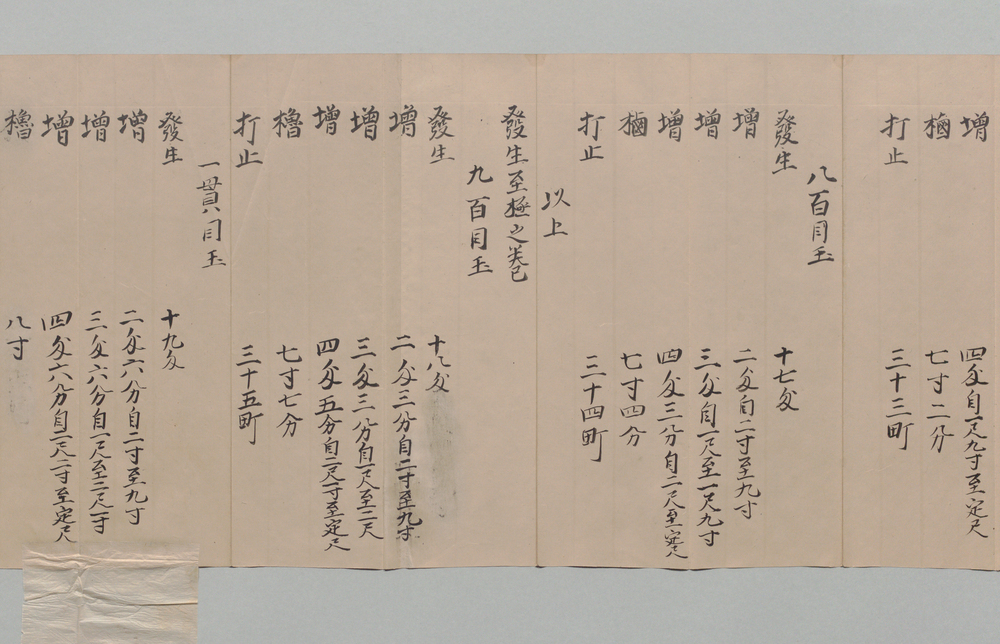 増 四分自一尺九寸至定尺
櫓 七寸二分
打止 三十三町
八百目玉
發生 十七分
増 二分自二寸至九寸
増 三分自一尺至一尺九寸
増 四分三分自二尺至定尺
櫓 七寸四分
打止 三十四町
以上
發生至極之巻
九百目玉
發生 十八分
増 二分三分自二寸至九寸
増 三分三分自一尺至二尺
増 四分五分自二尺一寸至定尺
櫓 七寸七分
打止 三十五町
一貫八目玉
發生 十九分
増 二分六分自二寸至九寸
増 三分六分自一尺至二尺一寸
増 四分六分自二尺二寸至定尺
櫓 八寸